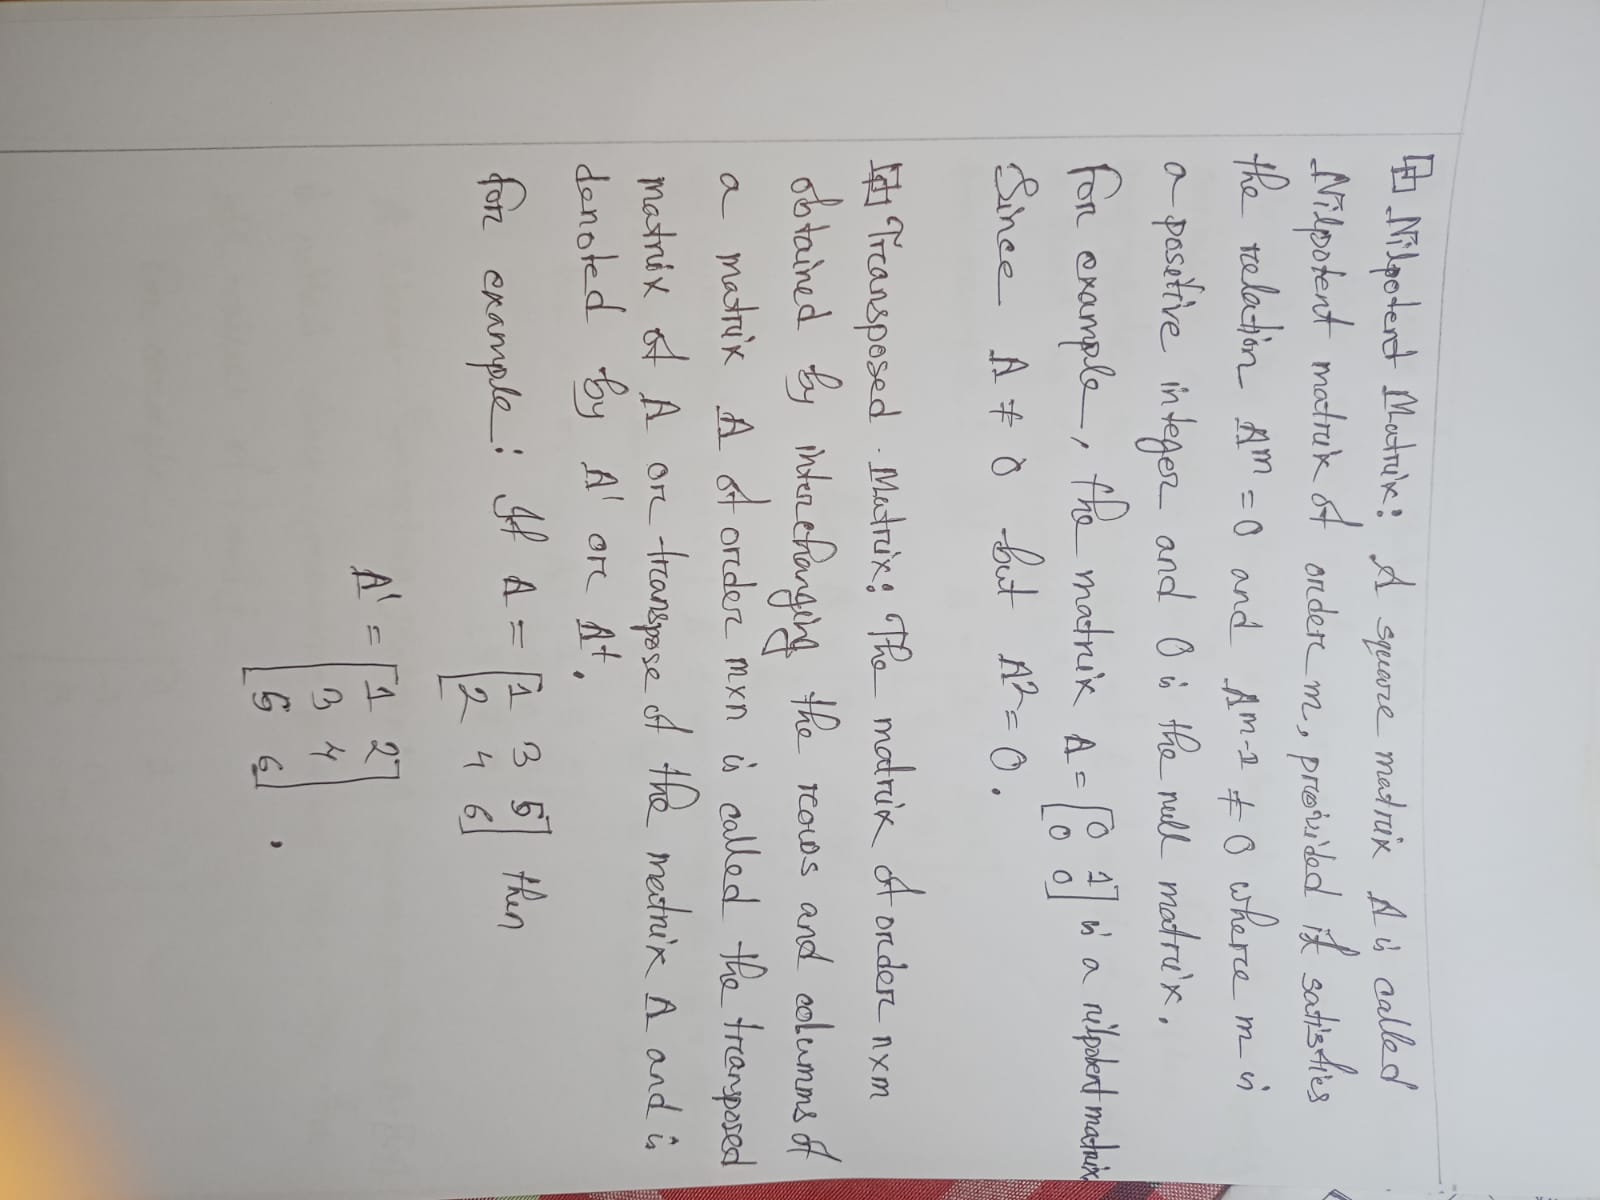 Nilpotent Matrix: A square matrix A is called
Nilpotent matrix of order m, provided it satisfies
the relation Aᵐ = 0 and Aᵐ⁻¹ ≠ 0 where m is
a posetive integer and 0 is the null matrix.
for example, the matrix A = [0 1] is a nilpotent matrix
[0 0]
Since A ≠ 0 but A² = 0.
Transposed Matrix: The matrix of order n×m
obtained by interchanging the rows and columns of
a matrix A of order m×n is called the transposed
matrix of A or transpose of the matrix A and is
denoted by A' or Aᵗ.
for example: If A = [1 3 5] then
[2 4 6]
A' = [1 2]
[3 4]
[5 6].